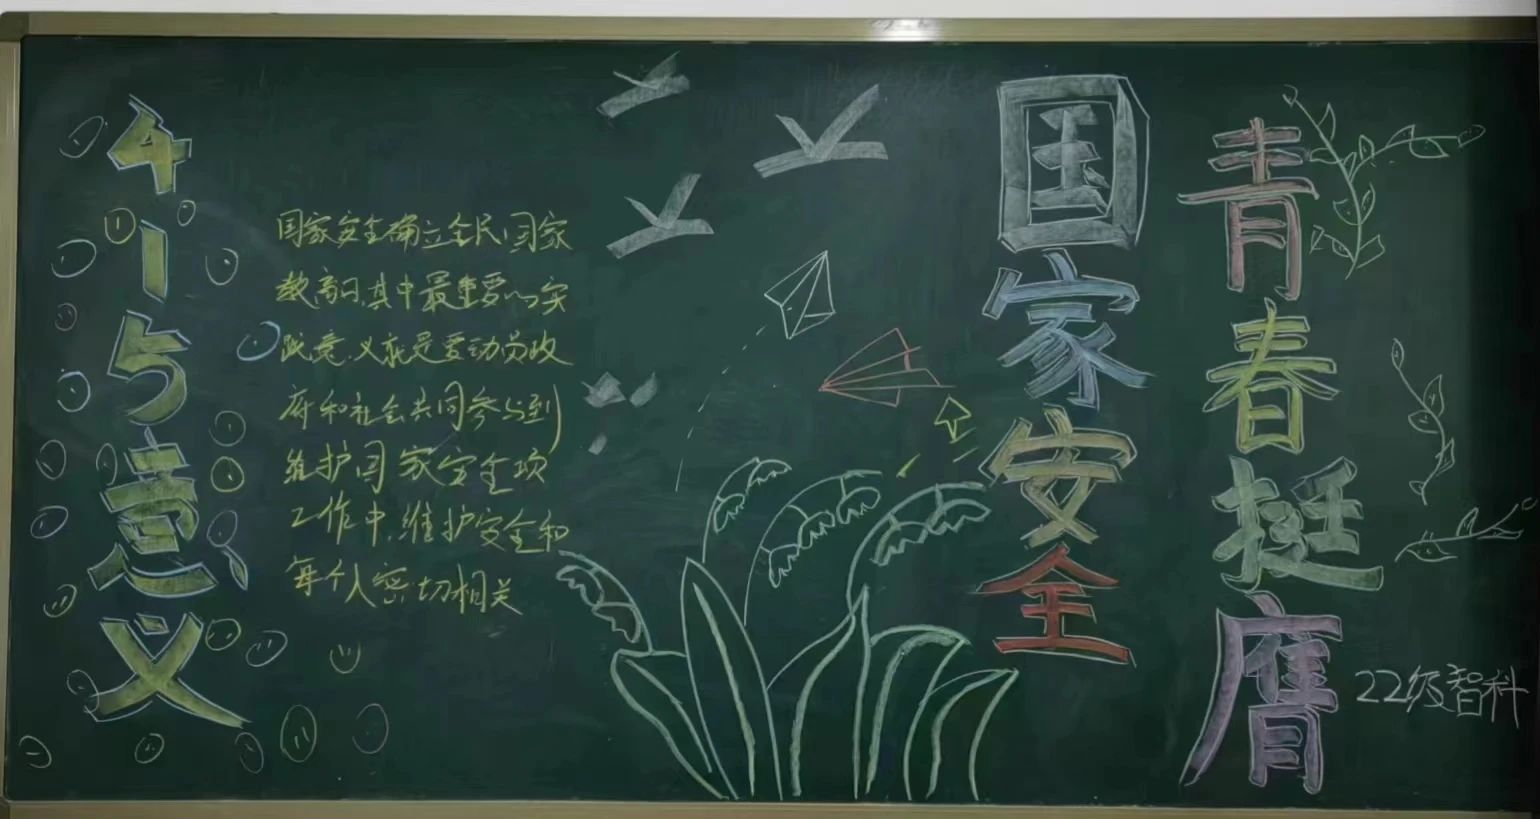 青春挺膺
国家安全
415意义
国家安全确立全民国家
教育日,其中最重要的实
践意义就是要动员政
府和社会共同参与到
维护国家安全
工作中,维护安全和
每个人密切相关
22级智科